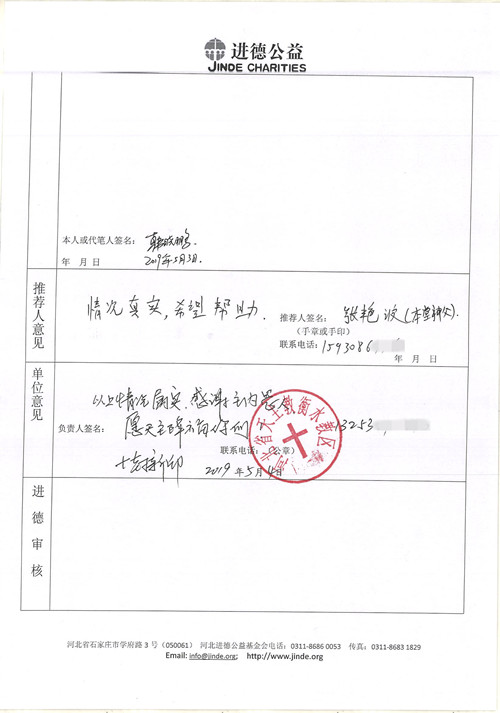 进德公益
JINDE CHARITIES
本人或代笔人签名：
年 月 日
2019年5月3日.
推荐人意见
情况真实，希望帮助.
推荐人签名：张艳波(本堂神父).
（手章或手印）
联系电话：1593086
年 月 日
单位意见
以上情况属实.感谢主内恩人
负责人签名：
愿天主降福你们
3253
联系电话：
（公章）
2019年5月4日
河北省天主教衡水教区
进德审核
河北省石家庄市学府路 3 号（050061） 河北进德公益基金会电话：0311-8686 0053 传真：0311-8683 1829
Email: info@jinde.org; http://www.jinde.org